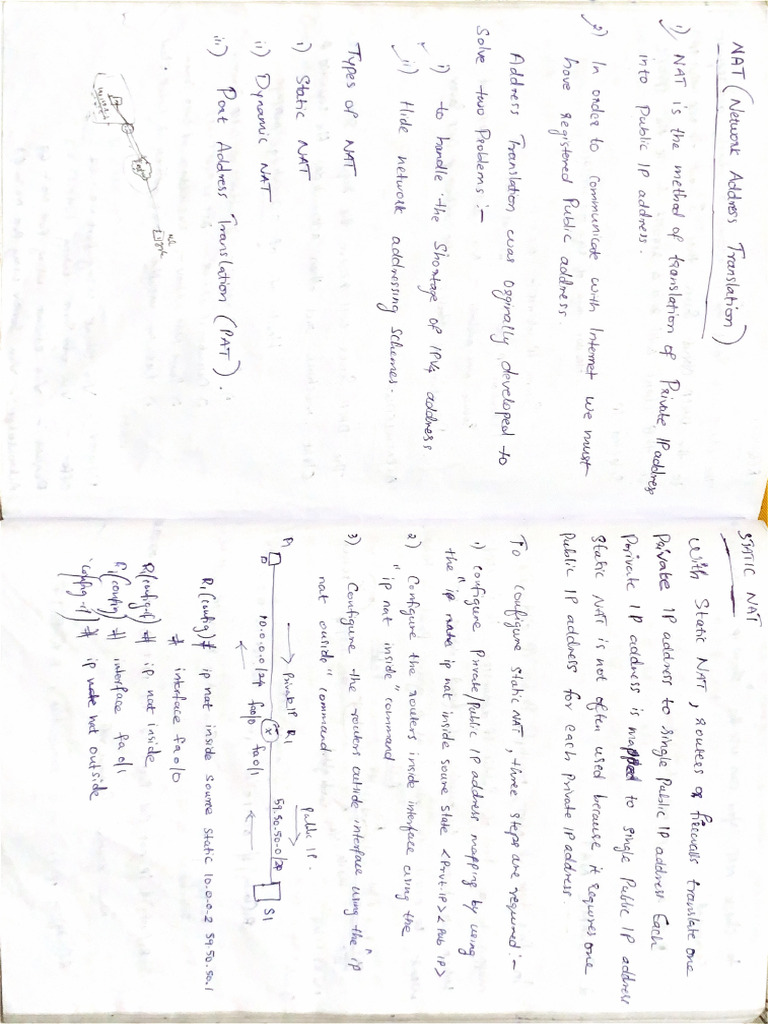 NAT (Network Address Translation)
1) NAT is the method of translation of Private IP address
into Public IP address.
2) In order to communicate with Internet we must
have registered Public address.
Address Translation was orginally developed to
Solve two Problems :-
i) to handle the Shortage of IPV4 address
ii) Hide network addressing Schemes.
Types of NAT
i) Static NAT
ii) Dynamic NAT
iii) Port Address Translation (PAT).
STATIC NAT
With Static NAT, routers or firewalls translate one
Private IP address to single Public IP address Each
Private IP address is mapped to single Public IP address
Static NAT is not often used because it requires one
Public IP address for each Private IP address.
To configure Static NAT, three steps are required :-
1) configure Private/Public IP address mapping by using
the "ip nat inside soure state <Prvt.IP> <Pub IP>
2) Configure the routers inside interface using the
"ip nat inside" command
3) Configure the routers outside interface using the "ip
nat ouside" command
Private IP
Public IP.
P1
R1
S1
10.0.0.0/24
fa0/0
fa0/1
59.50.50.0/29
R1(config)# ip nat inside source static 10.0.0.2 59.50.50.1
# interface fa0/0
R1(config-if)# ip nat inside
R1(config)# interface fa0/1
(config-if)# ip nat outside